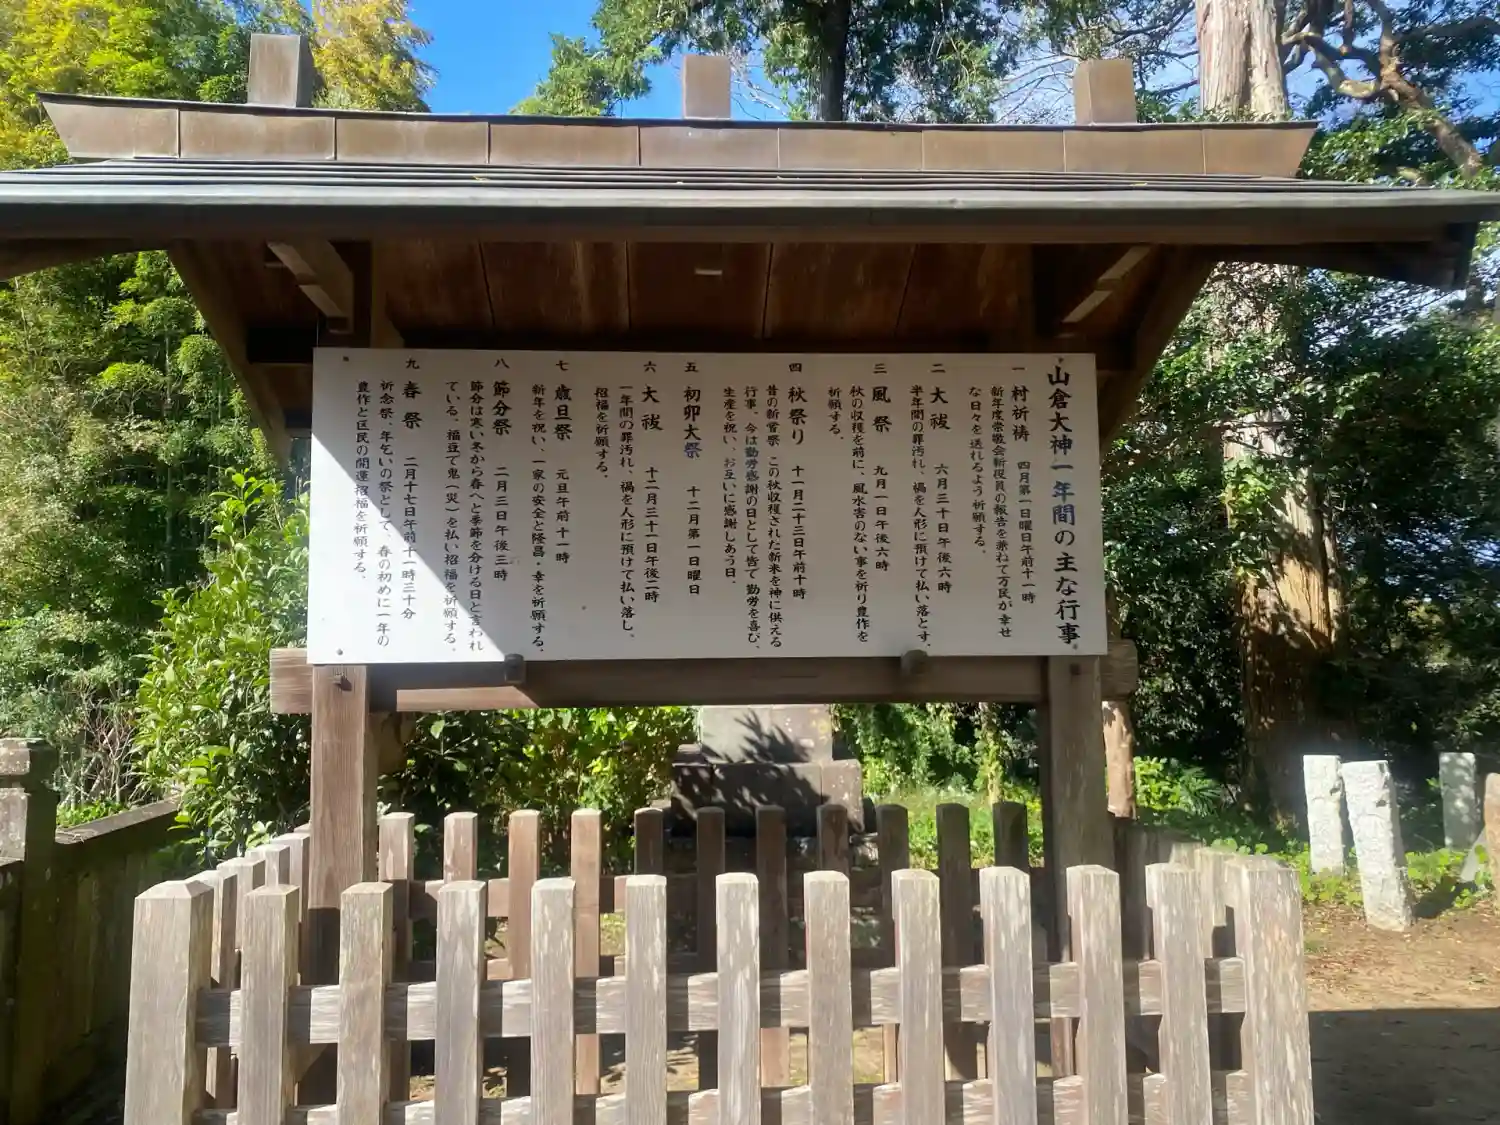 山倉大神一年間の主な行事
一 村祈祷 四月第一日曜日午前十一時
新年度崇敬会新役員の報告を兼ねて万民が幸せ
な日々を送れるよう祈願する。
二 大祓 六月三十日午後六時
半年間の罪汚れ、禍を人形に預けて払い落とす。
三 風祭 九月一日午後六時
秋の収穫を前に、風水害のない事を祈り豊作を
祈願する。
四 秋祭り 十一月二十三日午前十時
昔の新嘗祭、この秋収穫された新米を神に供える
行事。今は勤労感謝の日として皆で勤労を喜び、
生産を祝い、お互いに感謝しあう日。
五 初卯大祭 十二月第一日曜日
六 大祓 十二月三十一日午後二時
一年間の罪汚れ、禍を人形に預けて払い落し、
招福を祈願する。
七 歳旦祭 元旦午前十一時
新年を祝い、一家の安全と隆昌・幸を祈願する。
八 節分祭 二月三日午後三時
節分は寒い冬から春へと季節を分ける日と言われ
ている。福豆で鬼(災)を払い招福を祈願する。
九 春祭 二月十七日午前十一時三十分
祈念祭、年乞いの祭として、春の初めに一年の
豊作と匡民の開運招福を祈願する。